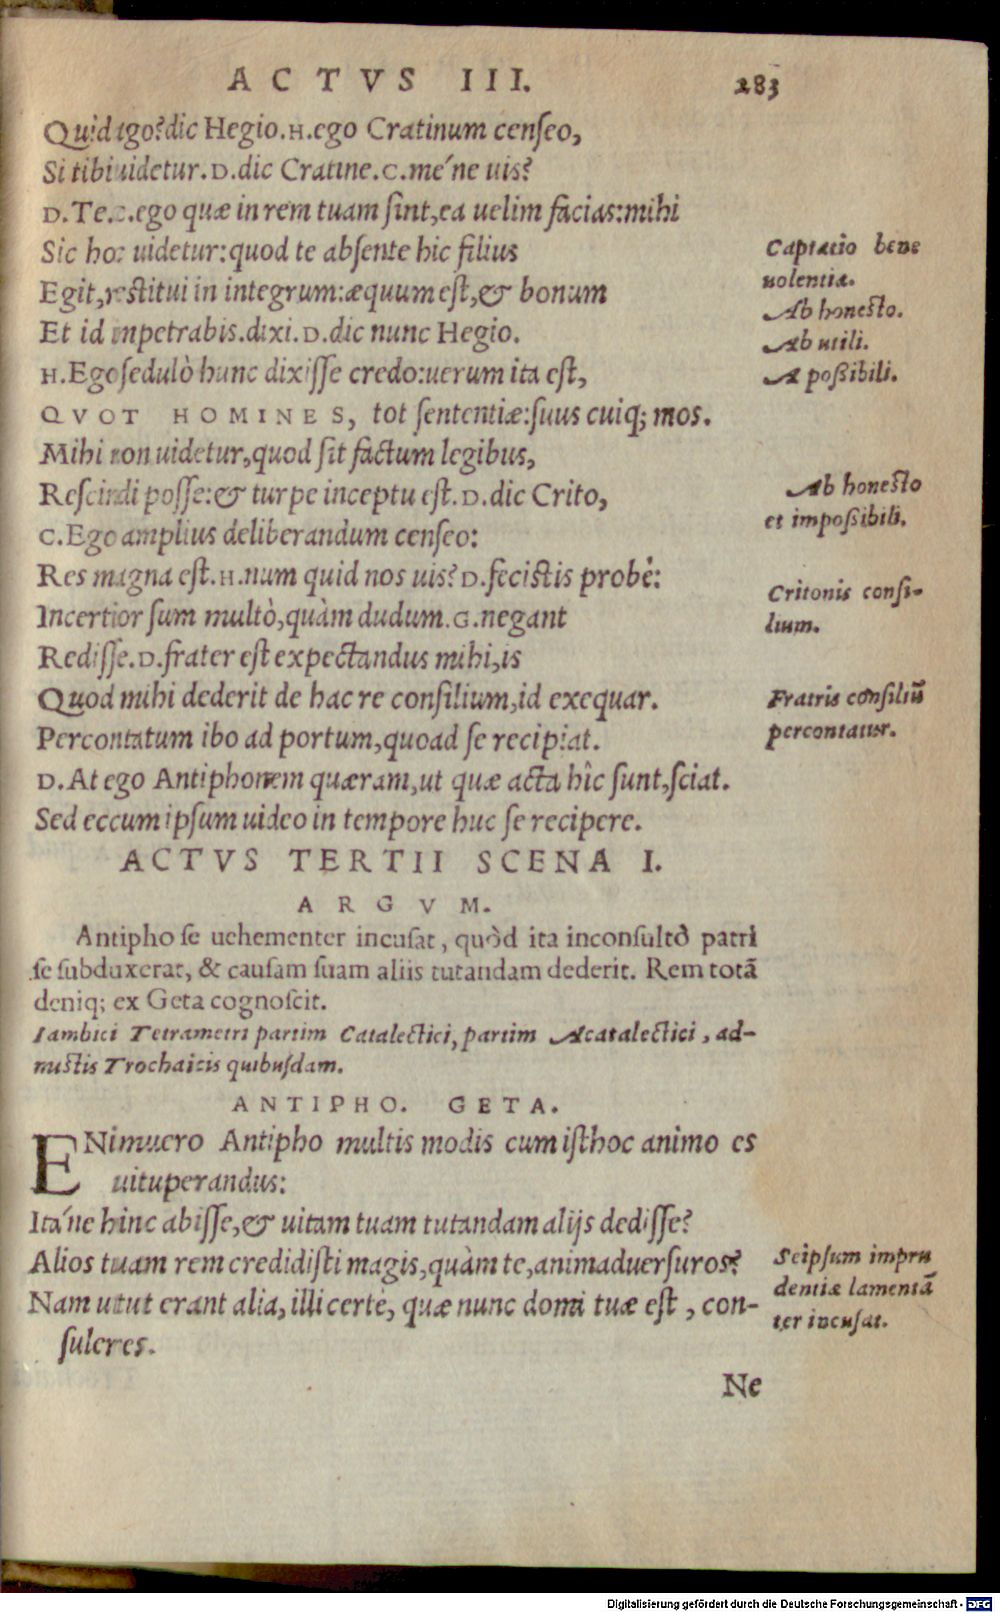 ACTVS III. 283
Quid ago? dic Hegio. H. ego Cratinum censeo,
Si tibi uidetur. D. dic Cratine. C. me´ne uis?
D. Te. C. ego quæ in rem tuam sint, ea uelim facias: mihi
Sic hoc uidetur: quod te absente hic filius
Captatio bene
uolentiæ.
Egit, restitui in integrum: æquum est, & bonum
Ab honesto.
Et id inpetrabis. dixi. D. dic nunc Hegio.
Ab utili.
H. Ego sedulò hunc dixisse credo: uerum ita est,
A poßibili.
QVOT HOMINES, tot sententiæ: suus cuiq; mos.
Mihi non uidetur, quod sit factum legibus,
Rescindi posse: & turpe inceptu est. D. dic Crito,
Ab honesto
et impoßibili.
C. Ego amplius deliberandum censeo:
Res magna est. H. num quid nos uis? D. fecistis probè:
Critonis consi-
lium.
Incertior sum multò, quàm dudum. G. negant
Redisse. D. frater est expectandus mihi, is
Quod mihi dederit de hac re consilium, id exequar.
Fratris consiliũ
percontatur.
Percontatum ibo ad portum, quoad se recipiat.
D. At ego Antiphonem quæram, ut quæ acta hîc sunt, sciat.
Sed eccum ipsum uideo in tempore huc se recipere.
ACTVS TERTII SCENA I.
ARGVM.
Antipho se uehementer incusat, quòd ita inconsultò patri
se subduxerat, & causam suam aliis tutandam dederit. Rem totã
deniq; ex Geta cognoscit.
Iambici Tetrametri partim Catalectici, partim Acatalectici, ad-
mistis Trochaicis quibusdam.
ANTIPHO. GETA.
ENimuero Antipho multis modis cum isthoc animo es
uituperandus:
Ita´ne hinc abisse, & uitam tuam tutandam alijs dedisse?
Alios tuam rem credidisti magis, quàm te, animaduersuros?
Seipsum impru
dentiæ lamentã
ter incusat.
Nam utut erant alia, illi certè, quæ nunc domi tuæ est, con-
suleres.
Ne
Digitalisierung gefördert durch die Deutsche Forschungsgemeinschaft - DFG